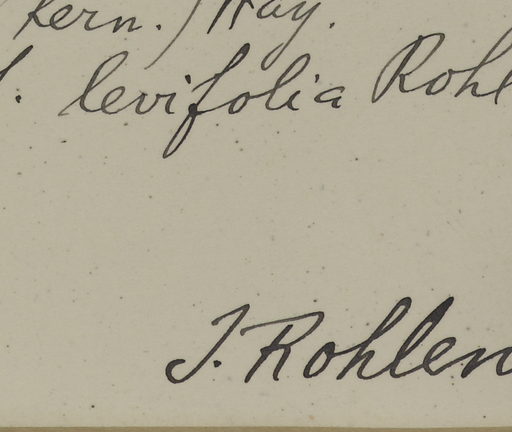 Kern.) Hay.
f. levifolia Rohl
J. Rohlen